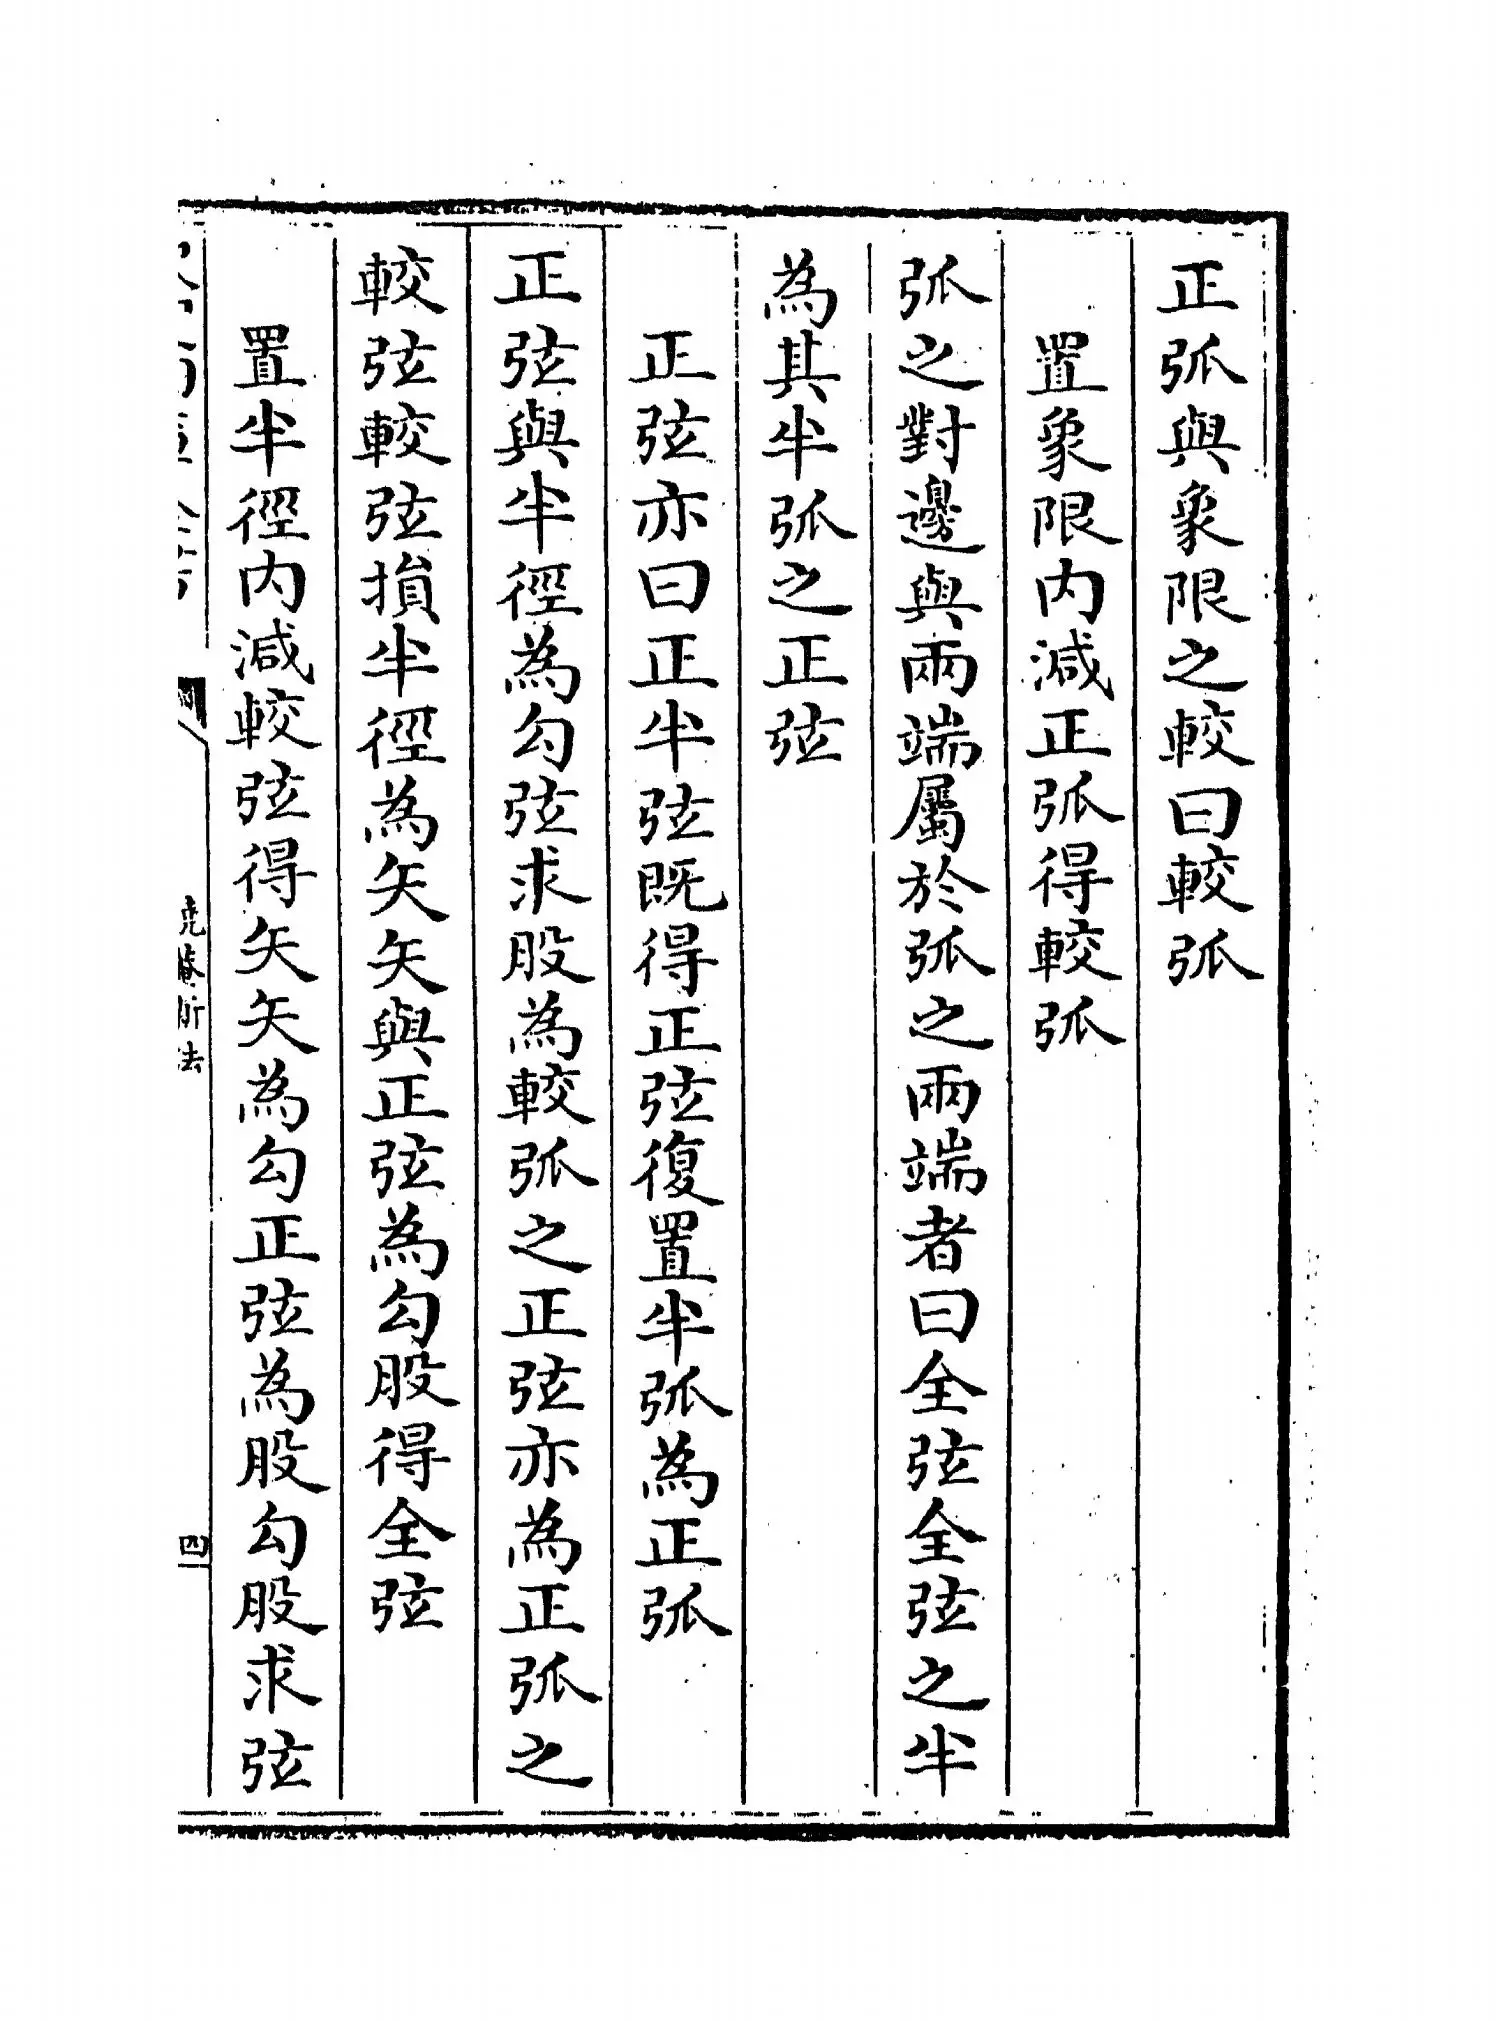 正弧與象限之較曰較弧
置象限内減正弧得較弧
弧之對邊與兩端屬於弧之兩端者曰全弦全弦之半
為其半弧之正弦
正弦亦曰正半弦既得正弦復置半弧為正弧
正弦與半徑為勾弦求股為較弧之正弦亦為正弧之
較弦較弦損半徑為矢矢與正弦為勾股得全弦
置半徑内減較弦得矢矢為勾正弦為股勾股求弦
四